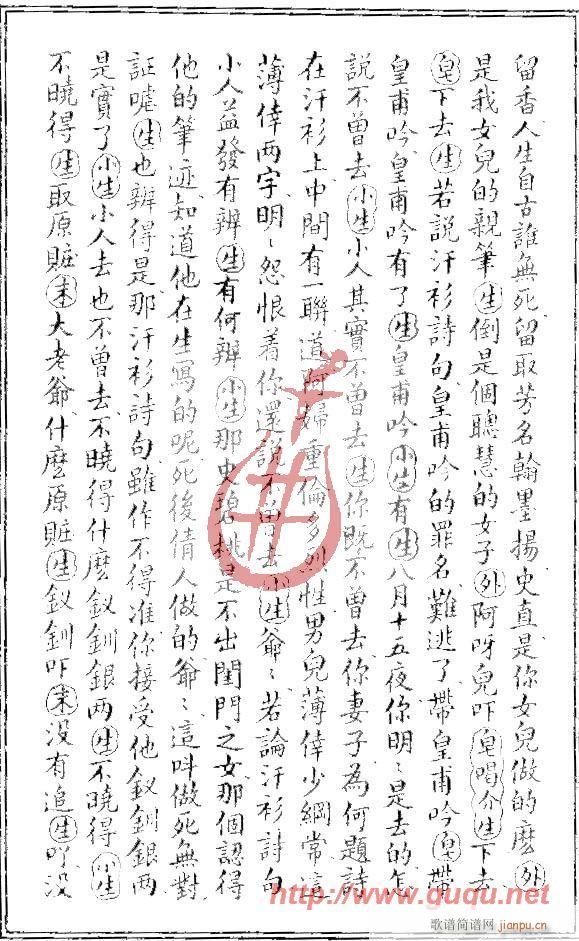 留香人生自古誰無死留取芳名翰墨揚史直是你女兒做的麽外
是我女兒的親筆生倒是個聰慧的女子外阿呀兒吓皂唱介生下去
皂下去生若說汗衫詩句皇甫吟的罪名難逃了帶皇甫吟皂帶
皇甫吟皇甫吟有了生皇甫吟小生有生八月十五夜你明〻是去的怎
說不曾去小生小人其實不曾去生你既不曾去你妻子為何題詩
在汗衫上中間有一聯道阿婦重倫多烈性男兒薄倖少綱常這
薄倖兩字明〻怨恨着你還說不曾去小生爺〻若論汗衫詩句
小人益發有辨生有何辨小生那史碧桃是不出閨門之女那個認得
他的筆迹知道他在生寫的呢死後倩人做的爺〻這叫做死無對
証嘘生也辨得是那汗衫詩句雖作不得准你接受他釵釧銀两
是實了小生小人去也不曾去不曉得什麽釵釧銀两生不曉得小生
不曉得生取原賍末大老爺什麽原賍生釵釧吓末没有追生吖没
http://www.guqu.net
歌谱简谱网
jianpu.cn